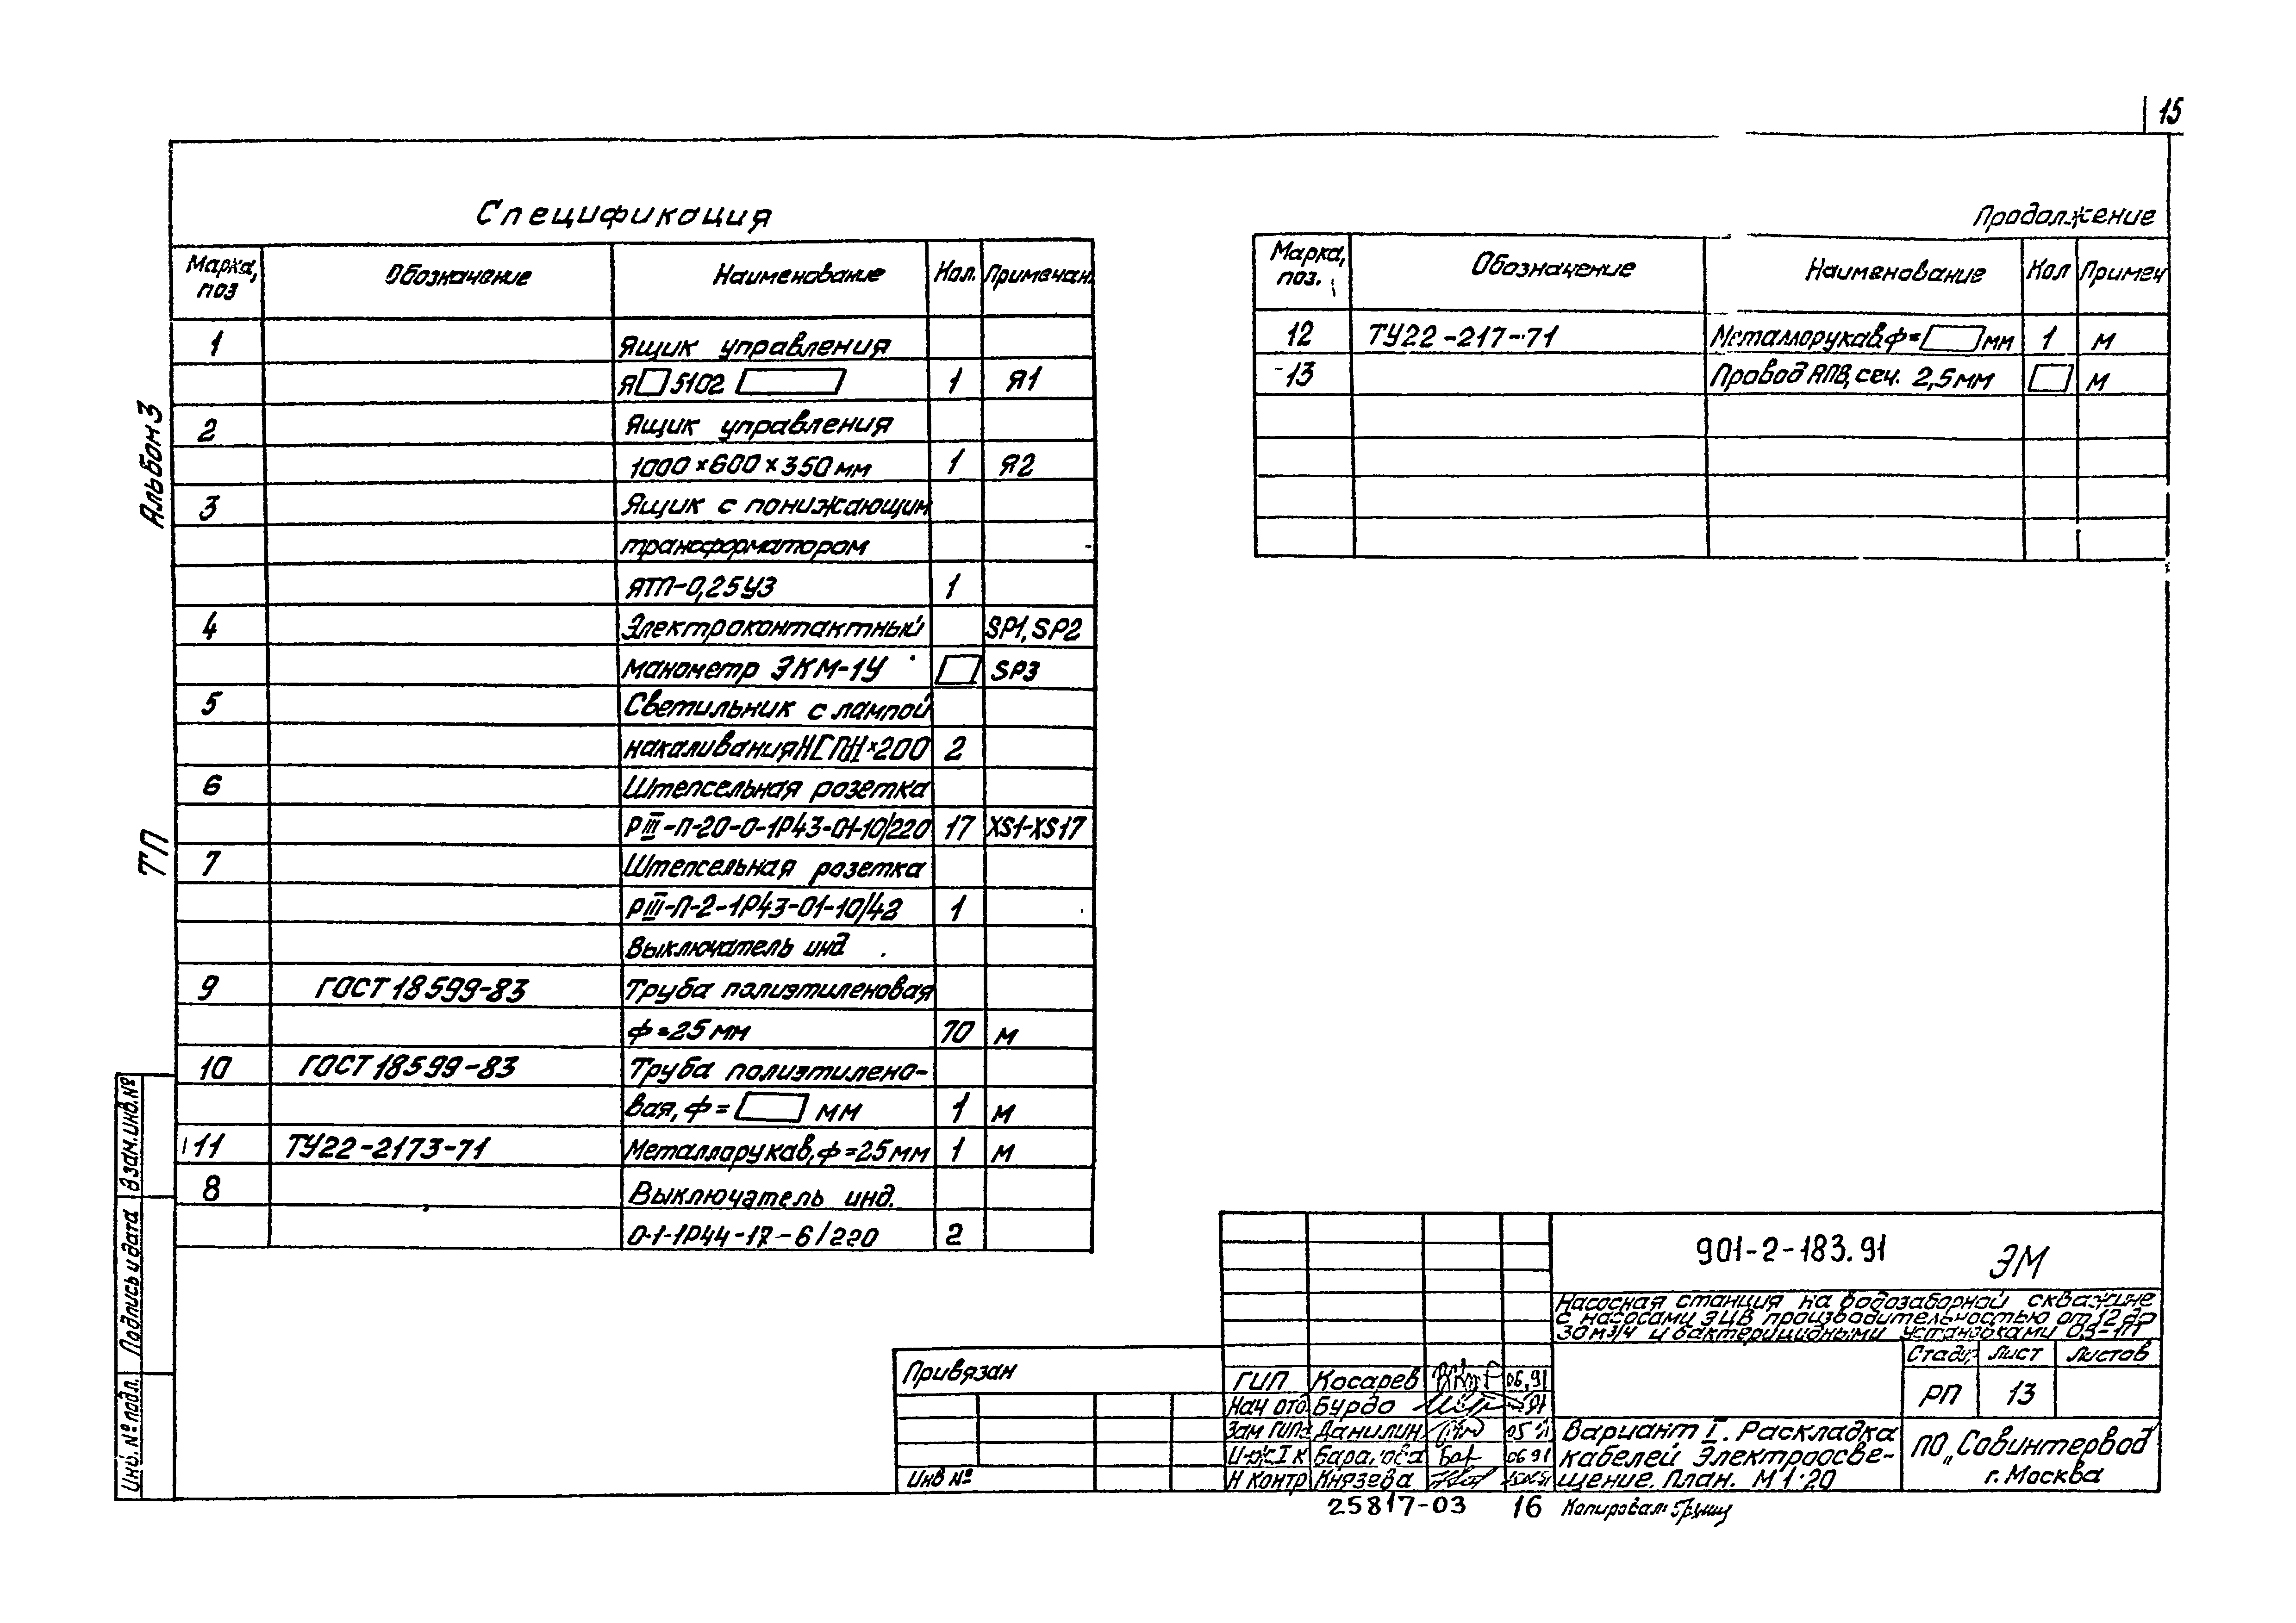 15
Спецификация
Марка, поз Обозначение Наименование Кол. Примечан.
1 Ящик управления
Я 5102 1 Я1
2 Ящик управления
1000×600×350мм 1 Я2
3 Ящик с понижающим
трансформатором
ЯТП-0,25У3 1
4 Электроконтактный SP1, SP2
манометр ЭКМ-1У SP3
5 Светильник с лампой
накаливания ×200 2
6 Штепсельная розетка
РШ-П-20-0-1Р43-01-10/220 17 XS1-XS17
7 Штепсельная розетка
РШ-П-2-1Р43-01-10/42 1
Выключатель инд
9 ГОСТ 18599-83 Труба полиэтиленовая
ф=25мм 70 м
10 ГОСТ 18599-83 Труба полиэтилено-
вая, ф= мм 1 м
11 ТУ22-2173-71 Металлорукав, ф=25мм 1 м
8 Выключатель инд.
0-1-1Р44-17-6/220 2
Продолжение
Марка, поз. Обозначение Наименование Кол Примеч
12 ТУ22-217-71 Металлорукав ф= мм 1 м
13 Провод АПВ, сеч. 2,5мм м
Альбом 3
ТП
Взам. инв. №
Подпись и дата
Инв. № подл.
Привязан
Инв №
901-2-183.91 ЭМ
Насосная станция на водозаборной скважине
с насосами ЭЦВ производительностью от 12 до
30м3/ч и бактерицидными установками
Стади. Лист Листов
РП 13
ГИП Косарев 06.91
Нач отд. Бурдо
Зам ГИПа Данилин 05
И-ж I к
Н контр Князева
Вариант I. Раскладка
кабелей Электроосве-
щение. План. М 1:20
ПО „Совинтервод"
г. Москва
25817-03 16 Копировал: